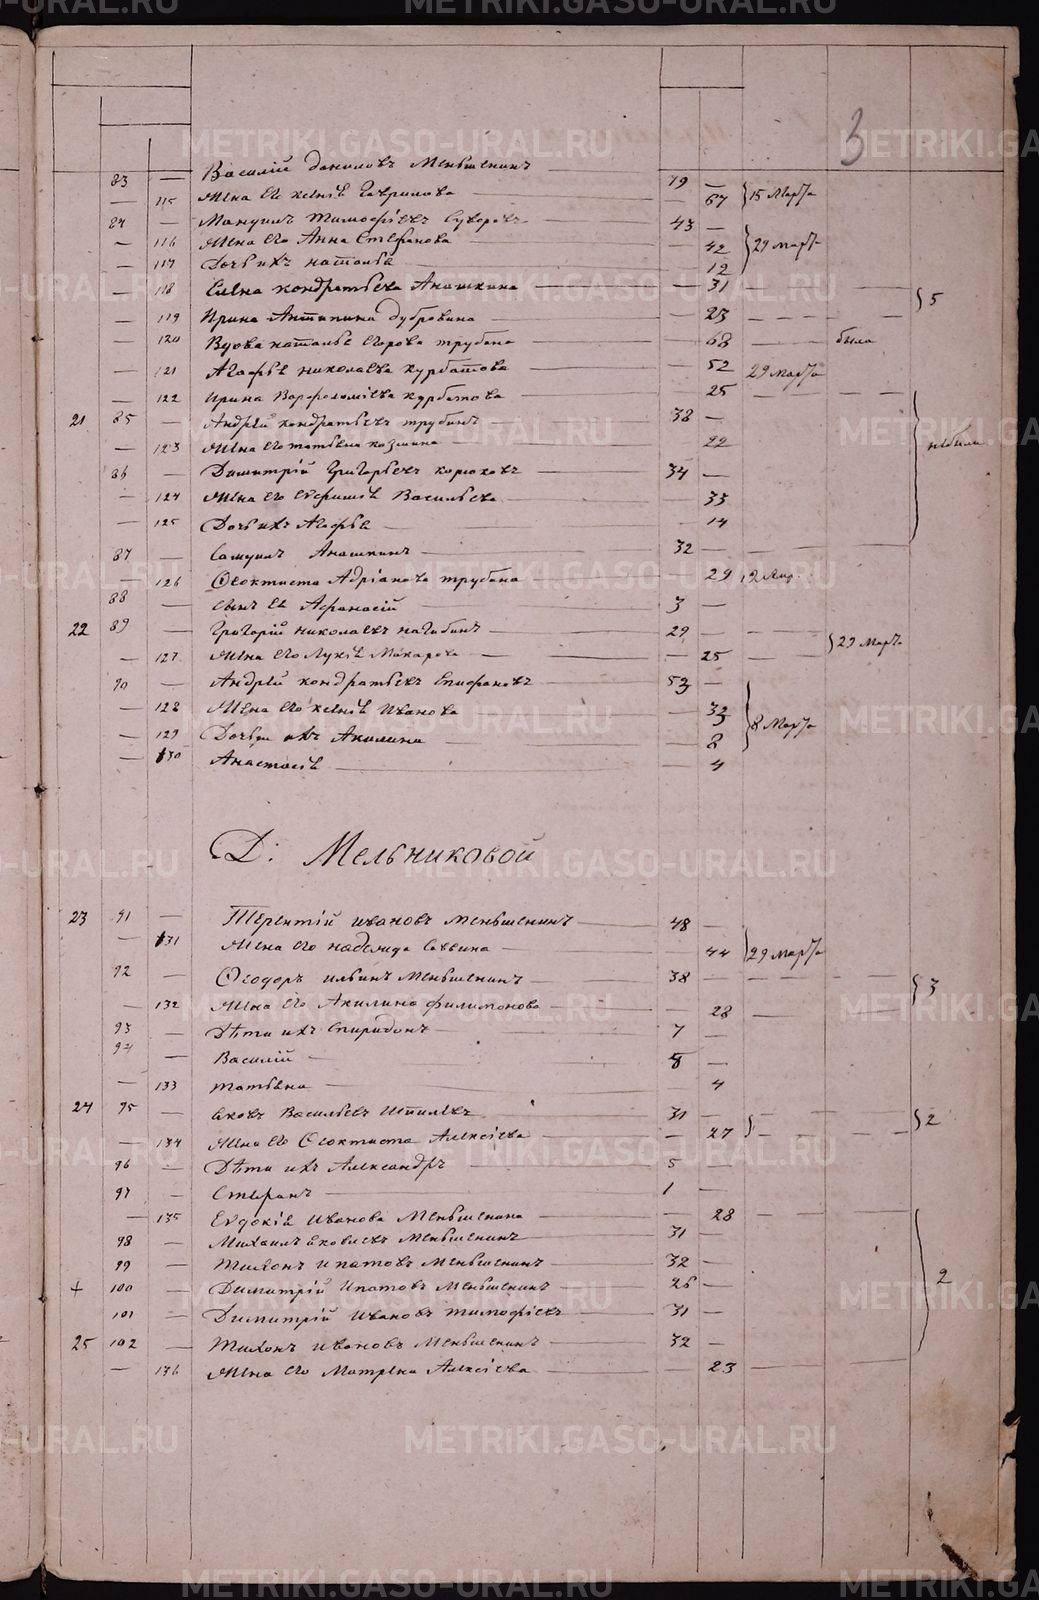 3
83 — Василій Даниловъ Меньшенинъ — 79 —
— 115 Жена его Ксенія Гаврилова — — 67 } 15 Марта
84 — Мануилъ Тимофѣевъ Суворовъ — 43 —
— 116 Жена его Анна Стефанова — — 42 } 29 Марта
— 117 Дочь ихъ Наталья — — 12
— 118 Елена Кондратьева Анашкина — — 31 — — — } 5
— 119 Ирина Антипина Дубровина — — 23 — — —
— 120 Вдова Наталья Егорова Трубина — — 68 — была
— 121 Агафья Николаева Курбатова — — 52 29 Марта
— 122 Ирина Варфоломѣева Курбатова — — 25 — — —
21 85 — Андрей Кондратьевъ Трубинъ — 38 —
— 123 Жена его Татьяна Козмина — — 22 } небыли
86 — Димитрій Григорьевъ Корюковъ — 34 —
— 124 Жена его Евфимія Васильева — — 33
— 125 Дочь ихъ Агафья — — 14
87 — Самуилъ Анашкинъ — 32 — — — —
— 126 Ѳеоктиста Адріанова Трубина — — 29 12 Апр.
88 — сынъ ея Афанасій — 3 —
22 89 — Григорій Николаевъ Нагибинъ — 29 — — } 29 Марта
— 127 Жена его Лукія Макарова — — 25 —
90 — Андрей Кондратьевъ Епифановъ — 53 —
— 128 Жена его Ксенія Иванова — — 32 } 8 Марта
— 129 Дочери ихъ Акилина — — 8
— 130 Анастасія — — 4
Д: Мельниковой
23 91 — Терентій Ивановъ Меньшенинъ — 48 —
— 131 Жена его Надежда Саввина — — 44 } 29 Марта
92 — Ѳеодоръ Ильинъ Меньшенинъ — 38 — — — — } 3
— 132 Жена его Акилина Филимонова — — 28 — — —
93 — Дѣти ихъ Спиридонъ — 7 —
94 — Василій — 8 —
— 133 Татьяна — — 4
24 95 — Яковъ Васильевъ — 31 — } — — — } 2
— 134 Жена его Ѳеоктиста Алексѣева — — 27
96 — Дѣти ихъ Александръ — 5 —
97 — Стефанъ — 1 —
— 135 Евдокія Иванова Меньшенина — — 28 — — —
98 — Михаилъ Яковлевъ Меньшенинъ — 31 —
99 — Тихонъ Ипатовъ Меньшенинъ — 32 —
+ 100 — Димитрій Ипатовъ Меньшенинъ — 26 — } 2
101 — Димитрій Ивановъ Тимофѣевъ — 31 —
25 102 — Тихонъ Ивановъ Меньшенинъ — 32 —
— 136 Жена его Матрена Алексѣева — — 23 — — —
METRIKI.GASO-URAL.RU